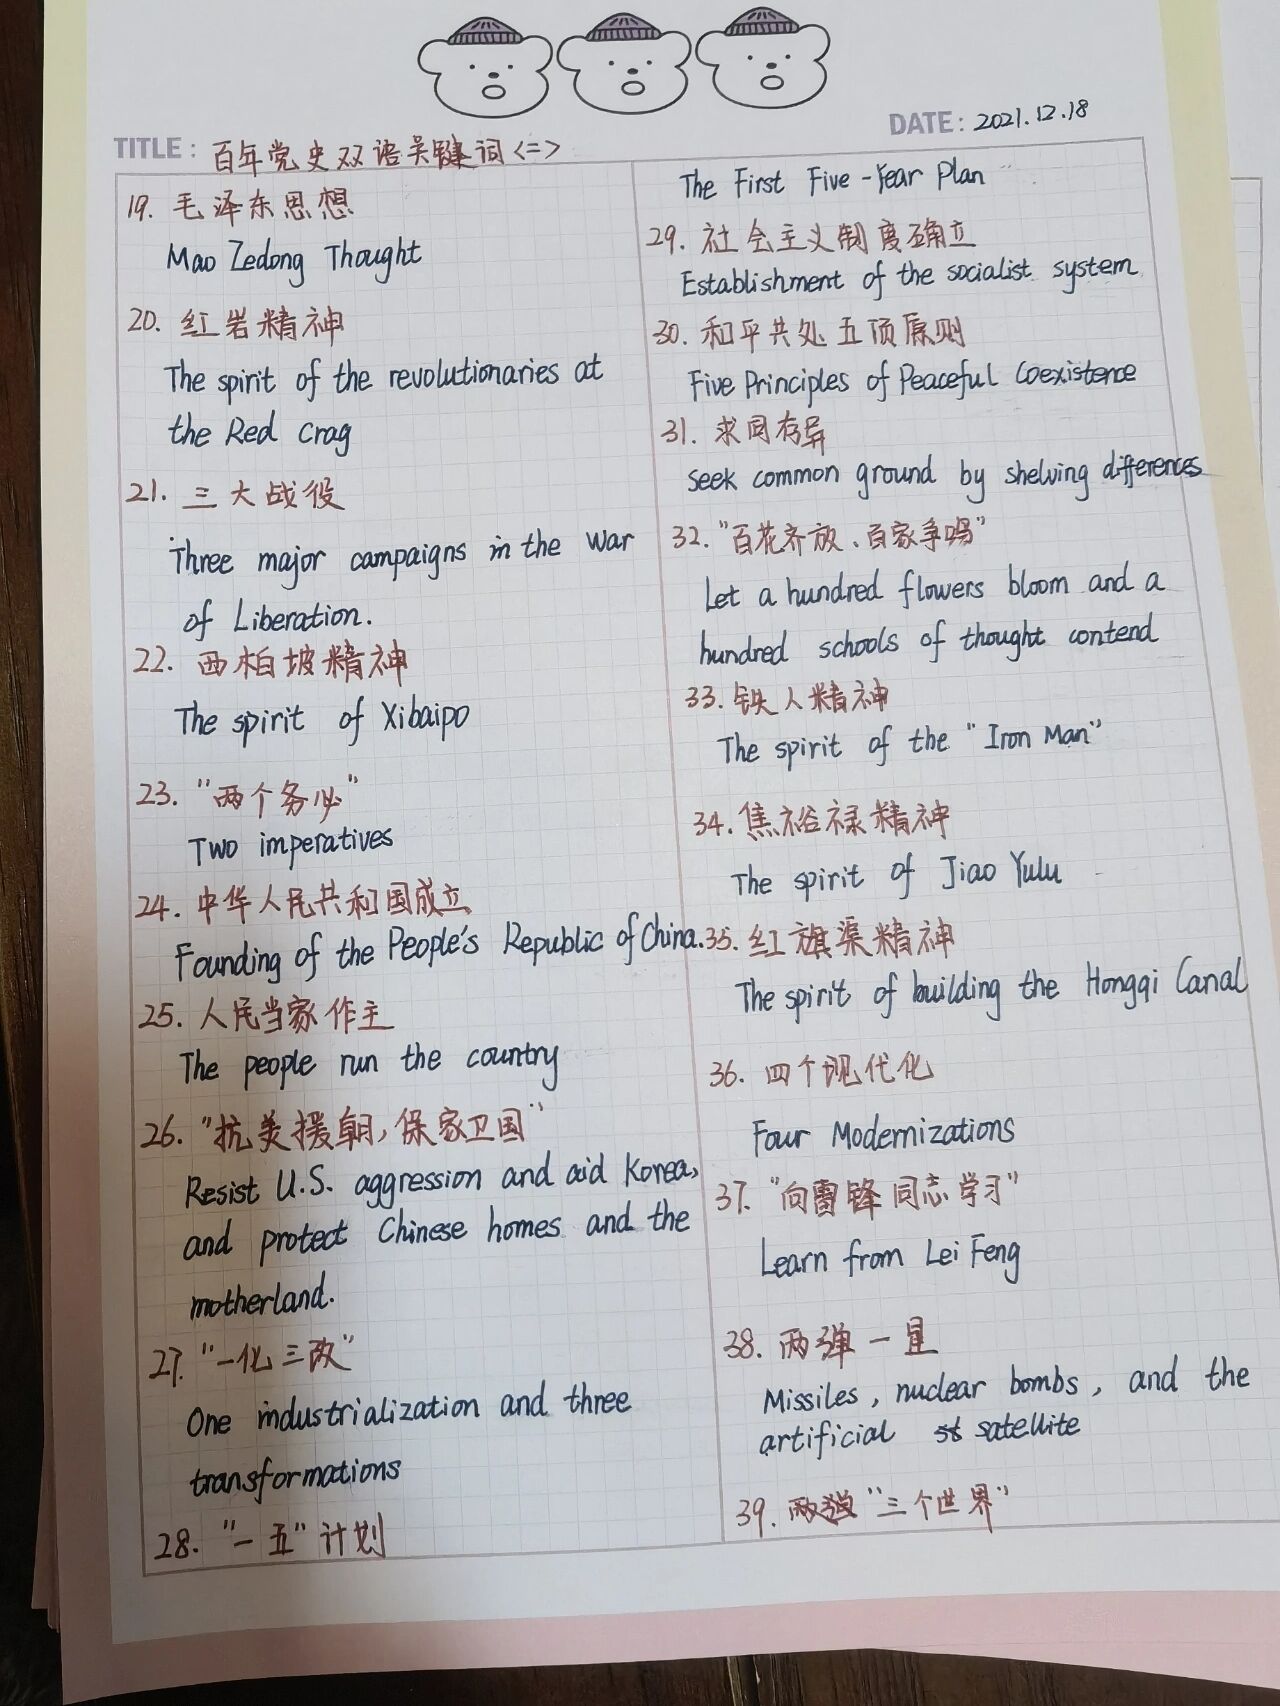 DATE: 2021.12.18
TITLE: 百年党史双语关键词<二>
19. 毛泽东思想
Mao Zedong Thought
20. 红岩精神
The spirit of the revolutionaries at
the Red Crag
21. 三大战役
Three major campaigns in the War
of Liberation.
22. 西柏坡精神
The spirit of Xibaipo
23. "两个务必"
Two imperatives
24. 中华人民共和国成立
Founding of the People's Republic of China.
25. 人民当家作主
The people run the country
26. "抗美援朝, 保家卫国"
Resist U.S. aggression and aid Korea,
and protect Chinese homes and the
motherland.
27. "一化三改"
One industrialization and three
transformations
28. "一五"计划
The First Five-Year Plan
29. 社会主义制度确立
Establishment of the socialist system
30. 和平共处五项原则
Five Principles of Peaceful Coexistence
31. 求同存异
Seek common ground by shelving differences
32. "百花齐放、百家争鸣"
Let a hundred flowers bloom and a
hundred schools of thought contend
33. 铁人精神
The spirit of the "Iron Man"
34. 焦裕禄精神
The spirit of Jiao Yulu
35. 红旗渠精神
The spirit of building the Hongqi Canal
36. 四个现代化
Four Modernizations
37. "向雷锋同志学习"
Learn from Lei Feng
38. 两弹一星
Missiles, nuclear bombs, and the
artificial st satellite
39. 两弹 "三个世界"